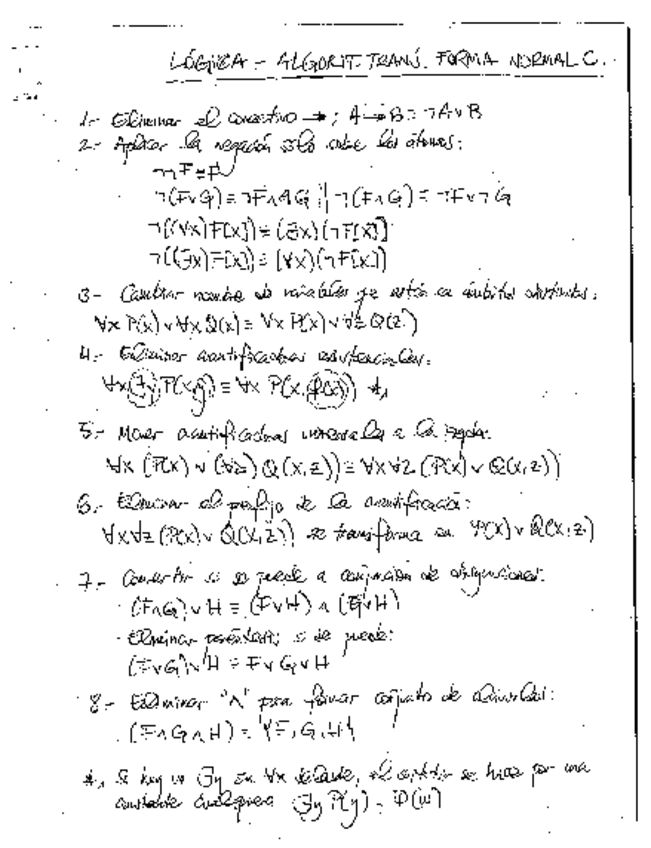 LÓGICA - ALGORIT. TRANS. FORMA NORMAL C.
1.- Eliminar el conectivo →; A→B ≡ ¬A∨B
2.- Aplicar la negación sólo sobre los átomos:
¬¬F ≡ F
¬(F∨G) ≡ ¬F∧¬G || ¬(F∧G) ≡ ¬F∨¬G
¬((∀x)F[x]) ≡ (∃x)(¬F[x])
¬((∃x)F[x]) ≡ (∀x)(¬F[x])
3.- Cambiar nombre de variables que están en ámbitos distintos:
∀x P(x) ∨ ∀x Q(x) ≡ ∀x P(x) ∨ ∀z Q(z)
4.- Eliminar cuantificadores existenciales:
∀x ∃y P(x,y) ≡ ∀x P(x,f(x)) *1
5.- Mover cuantificadores universales a la izqda:
∀x (P(x) ∨ (∀z) Q(x,z)) ≡ ∀x∀z (P(x) ∨ Q(x,z))
6.- Eliminar el prefijo de la cuantificación:
∀x∀z (P(x) ∨ Q(x,z)) se transforma en P(x) ∨ Q(x,z)
7.- Convertir si se puede a conjunción de disyunciones:
· (F∧G)∨H ≡ (F∨H) ∧ (G∨H)
· Eliminar paréntesis, si se puede:
(F∨G)∨H ≡ F∨G∨H
8.- Eliminar "∧" para formar conjunto de cláusulas:
(F∧G∧H) = {F,G,H}
*1 Si hay un ∃y sin ∀x delante, el cambio se hace por una
constante cualquiera ∃y P(y) = P(w)